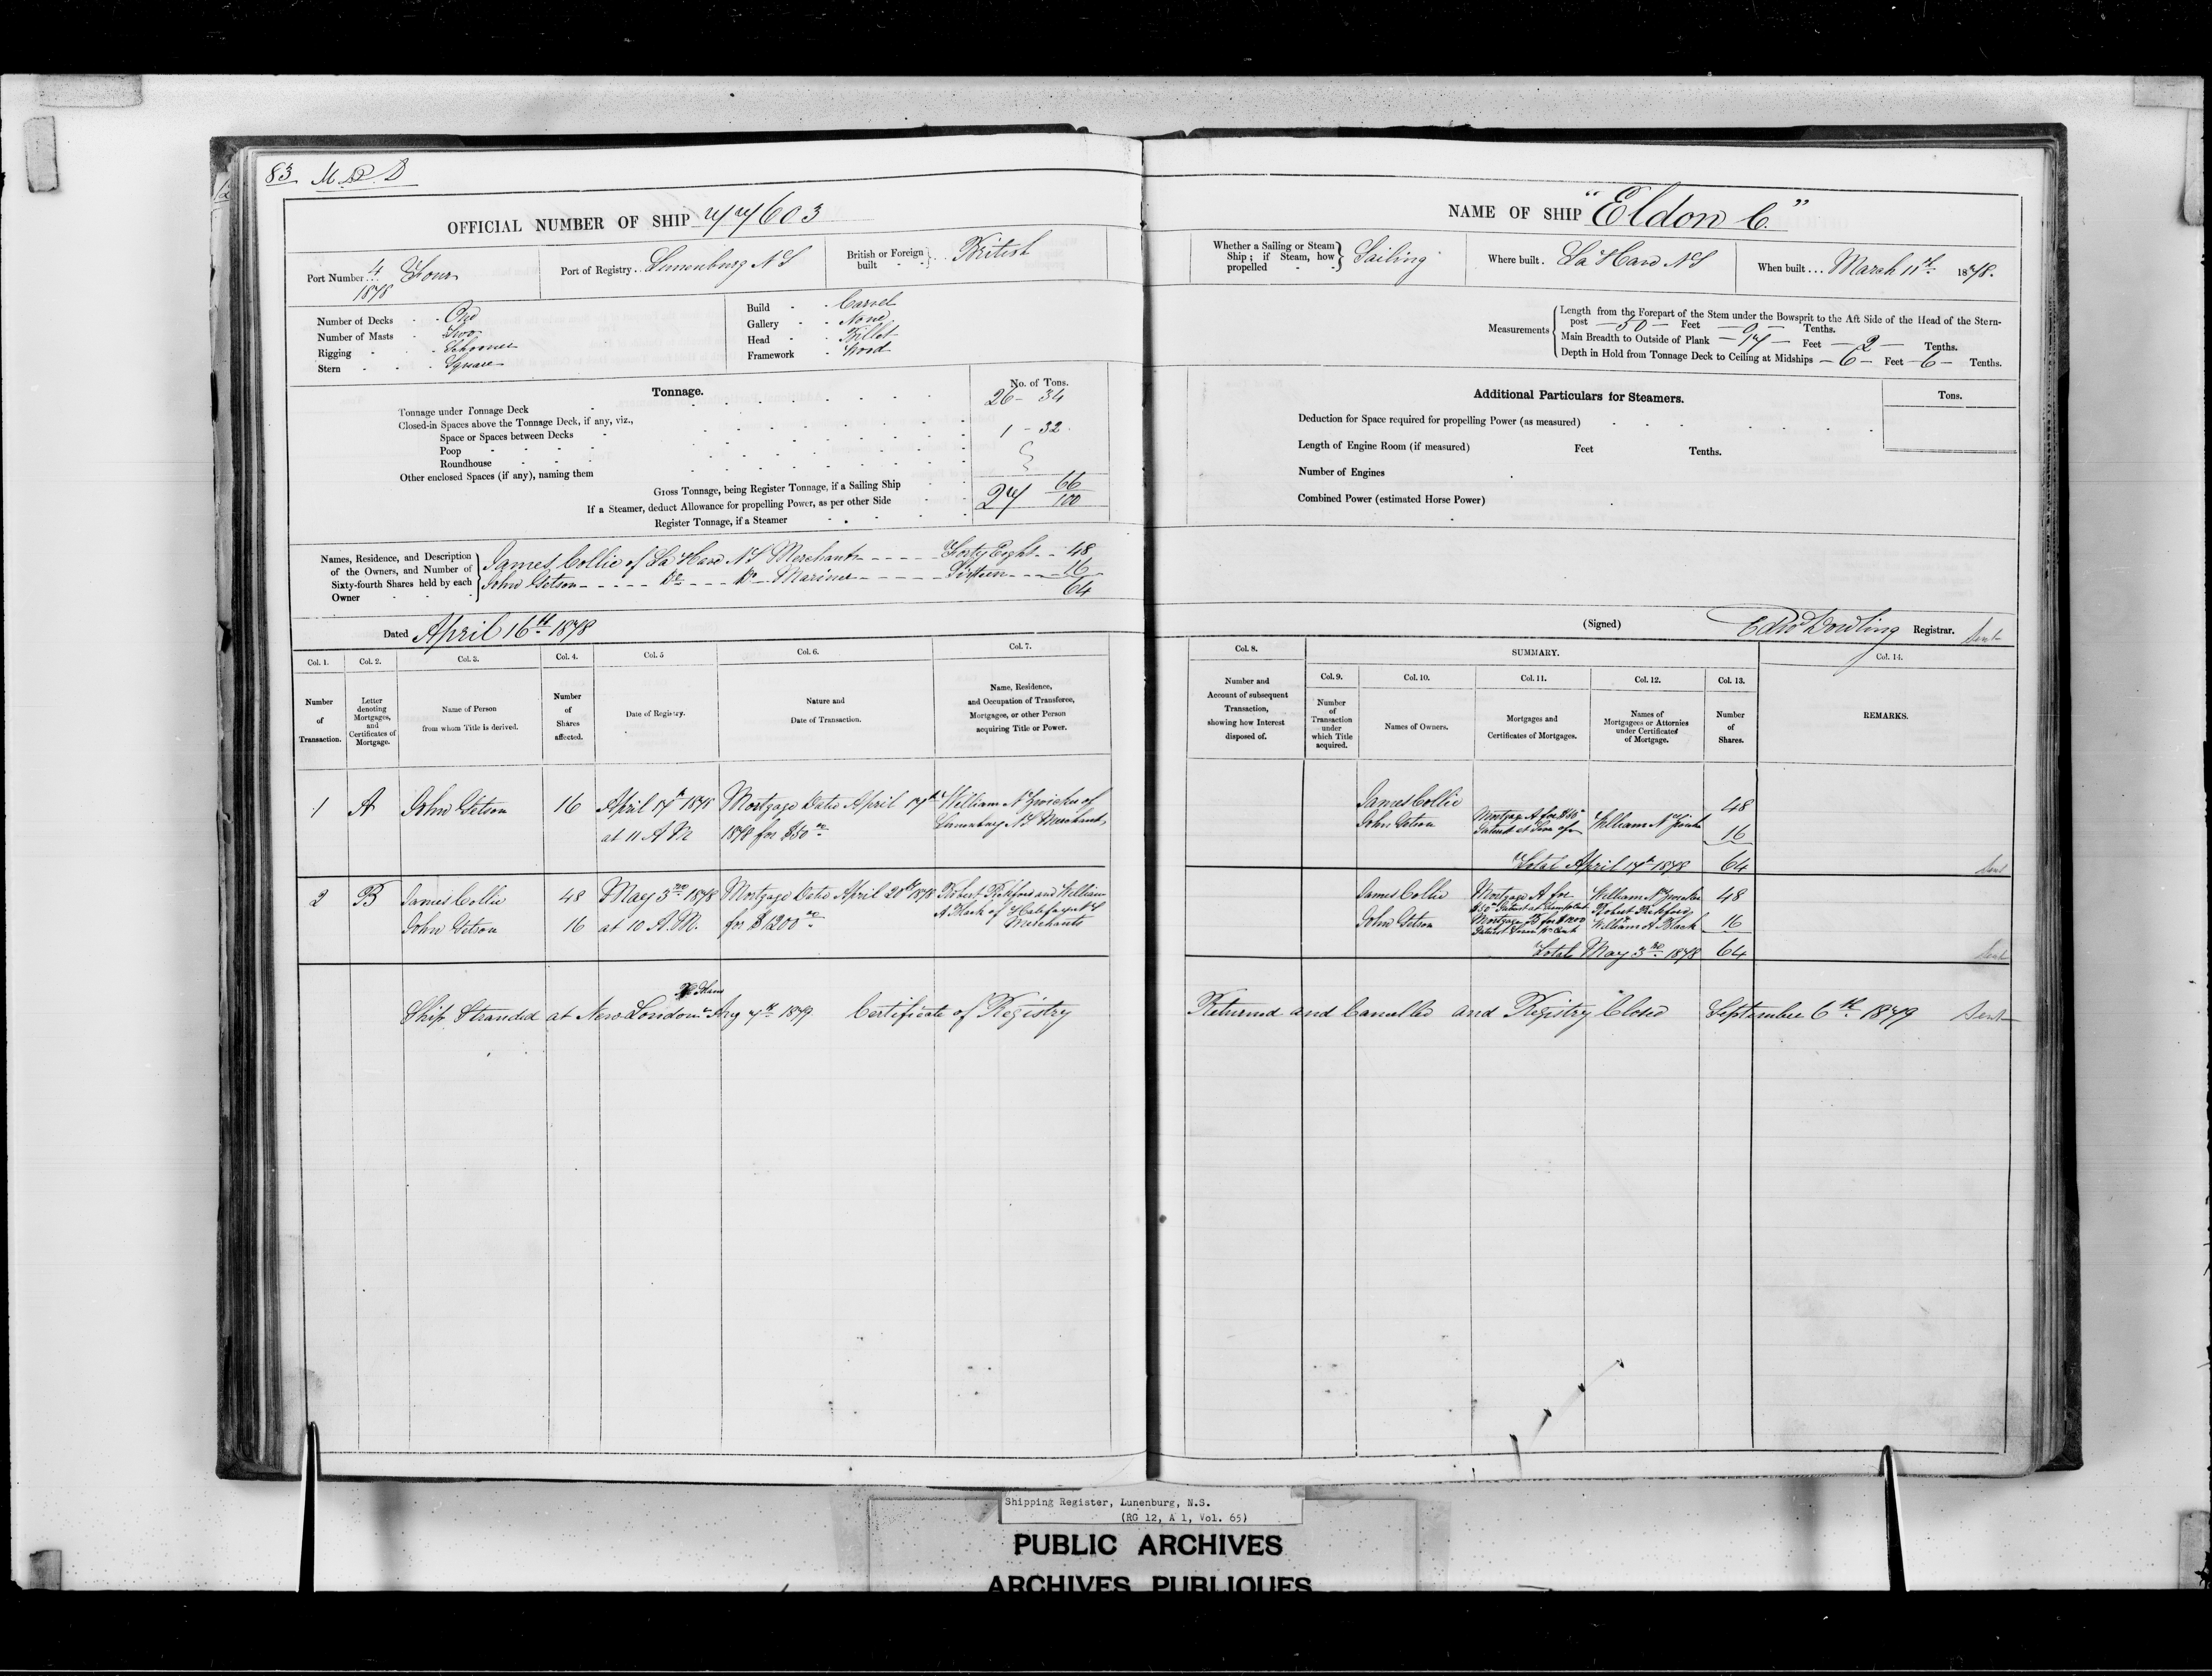 83 M.S.D
OFFICIAL NUMBER OF SHIP 77603
Port Number 4 Four
1878
Port of Registry Lunenburg N S
British or Foreign built British
Number of Decks One
Number of Masts Two
Rigging Schooner
Stern Square
Build Carvel
Gallery None
Head Billet
Framework Wood
Tonnage.
No. of Tons.
Tonnage under Tonnage Deck 26 - 34
Closed-in Spaces above the Tonnage Deck, if any, viz.,
Space or Spaces between Decks 1 - 32
Poop
Roundhouse
Other enclosed Spaces (if any), naming them
Gross Tonnage, being Register Tonnage, if a Sailing Ship 27 66/100
If a Steamer, deduct Allowance for propelling Power, as per other Side
Register Tonnage, if a Steamer
Names, Residence, and Description of the Owners, and Number of Sixty-fourth Shares held by each Owner
James Collie of La Have N.S Merchant Forty Eight 48
John Getson Do Do Mariner Sixteen 16
64
Dated April 16th 1878
Col. 1. Col. 2. Col. 3. Col. 4. Col. 5 Col. 6. Col. 7.
Number of Transaction.
Letter denoting Mortgages, and Certificates of Mortgage.
Name of Person from whom Title is derived.
Number of Shares affected.
Date of Registry.
Nature and Date of Transaction.
Name, Residence, and Occupation of Transferee, Mortgagee, or other Person acquiring Title or Power.
1 A John Getson 16 April 17th 1878 Mortgage Date April 17th William N
at 11 A M 1878 for $50 Lunenburg N S Merchant
2 B James Collie 48 May 3rd 1878 Mortgage Date April 20th 1878 Robert Pickford and William
John Getson 16 at 10 A.M. for $1200 A Black of Halifax N S
Merchants
Ship Stranded at New London Aug 7th 1879 Certificate of Registry
NAME OF SHIP "Eldon C."
Whether a Sailing or Steam Ship; if Steam, how propelled Sailing
Where built La Have N S
When built March 11th 1878.
Measurements
Length from the Forepart of the Stem under the Bowsprit to the Aft Side of the Head of the Stern-
post 50 Feet 9 Tenths.
Main Breadth to Outside of Plank 17 Feet 2 Tenths.
Depth in Hold from Tonnage Deck to Ceiling at Midships 6 Feet 6 Tenths.
Additional Particulars for Steamers.
Tons.
Deduction for Space required for propelling Power (as measured)
Length of Engine Room (if measured) Feet Tenths.
Number of Engines
Combined Power (estimated Horse Power)
(Signed) Edwd Dowling Registrar. Sent
Col. 8. SUMMARY. Col. 14.
Col. 9. Col. 10. Col. 11. Col. 12. Col. 13.
Number and Account of subsequent Transaction, showing how Interest disposed of.
Number of Transaction under which Title acquired.
Names of Owners.
Mortgages and Certificates of Mortgages.
Names of Mortgagees or Attornies under Certificates of Mortgage.
Number of Shares.
REMARKS.
James Collie 48
John Getson Mortgage A for $50 William N 16
Total April 17th 1878 64 Sent
James Collie Mortgage A for William N 48
$50 Interest at Robert Pickford
John Getson Mortgage B for $1200 William A Black 16
Total May 3rd 1878 64 Sent
Returned and Cancelled and Registry Closed September 6th 1879 Sent
Shipping Register, Lunenburg, N.S.
(RG 12, A 1, Vol. 65)
PUBLIC ARCHIVES
ARCHIVES PUBLIQUES